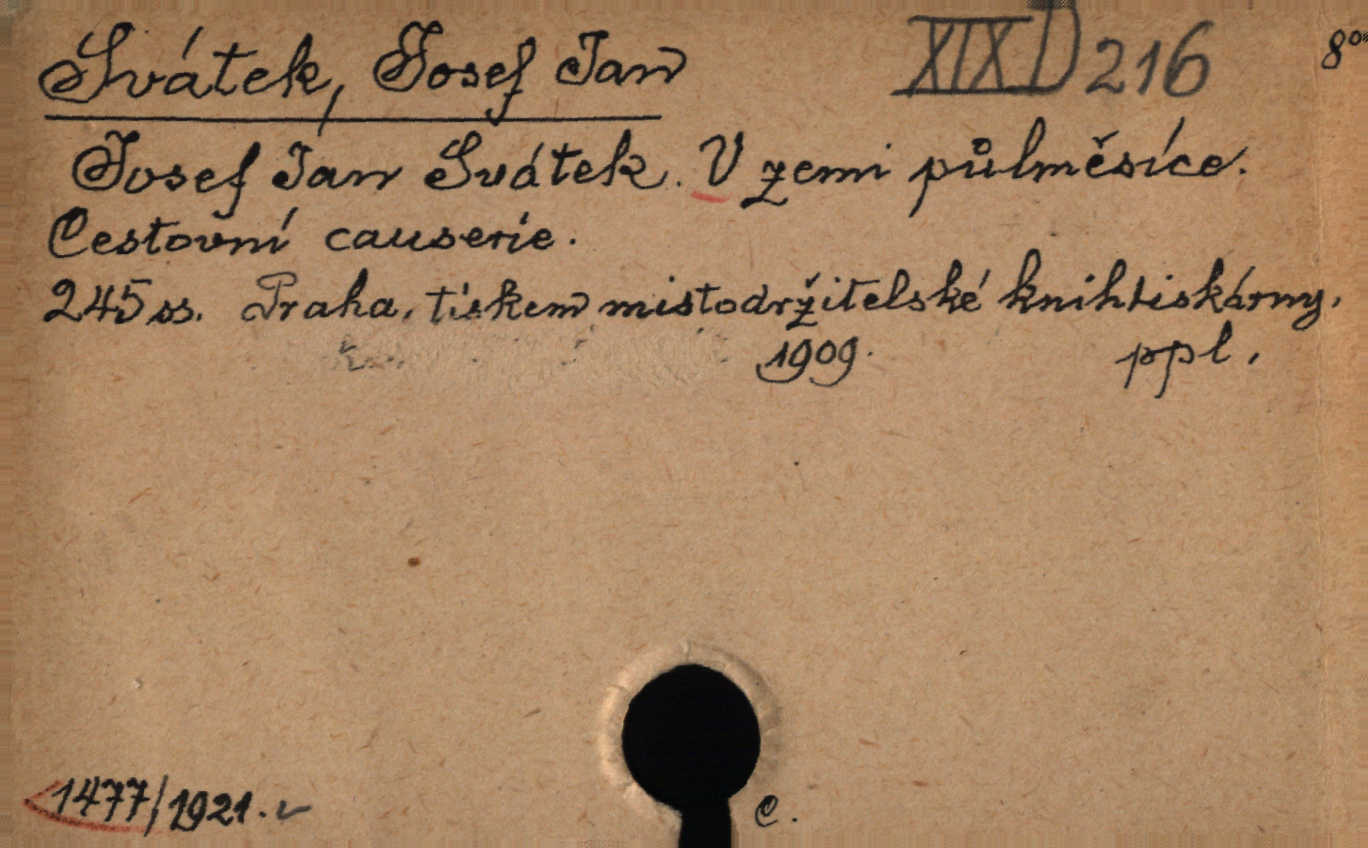 Svátek, Josef Jan XIX D 216 8°
Josef Jan Svátek. V zemi půlměsíce.
Cestovní causerie.
245 ss. Praha, tiskem mistodržitelské knihtiskárny,
1909. ppl.
1477/1921.
C.